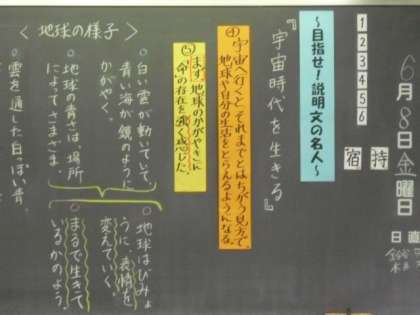 6月8日金曜日
日直
鈴木
持
宿
1
2
3
4
5
6
〜目指せ！説明文の名人〜
『宇宙時代を生きる』
④宇宙へ行くと、それまでとはちがう見方で、
地球や自分の生活をとらえるようになる。
⑤まず、地球のかがやきに
「命」の存在を強く感じた。
＜地球の様子＞
○白い雲が動いていて、
青い海が鏡のように
かがやく。
○地球の青さは、場所
によってさまざま
○雲を通した白っぽい青。
○地球はびみょ
うに表情を
変えていく
○まるで生きて
いるかのよう。